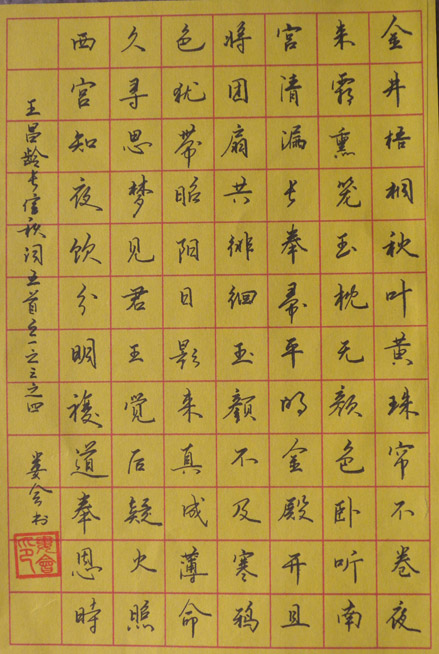 金井梧桐秋叶黄珠帘不卷夜
来霜熏笼玉枕无颜色卧听南
宫清漏长奉帚平明金殿开且
将团扇共徘徊玉顏不及寒鸦
色犹带昭阳日影来真成薄命
久寻思梦见君王觉后疑火照
西宫知夜饮分明複道奉恩時
王昌龄长信秋词五首之一之三之四 娄会书
婁會印